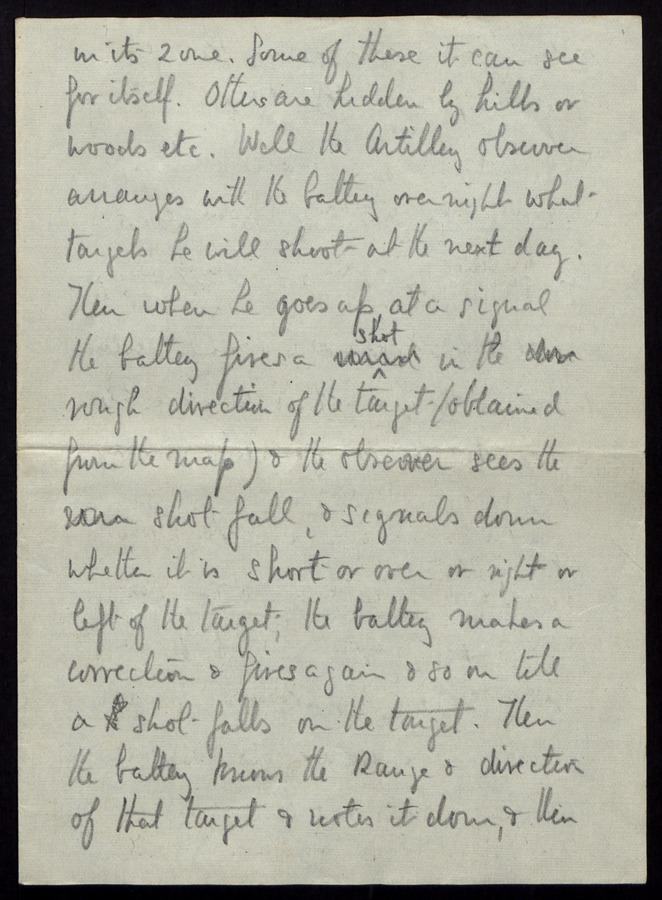 in its zone. Some of these it can see
for itself. Others are hidden by hills or
woods etc. Well the Artillery observer
arranges with the battery overnight what
targets he will shoot at the next day.
Then when he goes up, at a signal
shot
the battery fires a in the
rough direction of the target (obtained
from the map) & the observer sees the
shot fall, & signals down
whether it is short or over or right or
left of the target; the battery makes a
correction & fires again & so on till
a shot falls on the target. Then
the battery knows the Range & direction
of that target & notes it down, & then